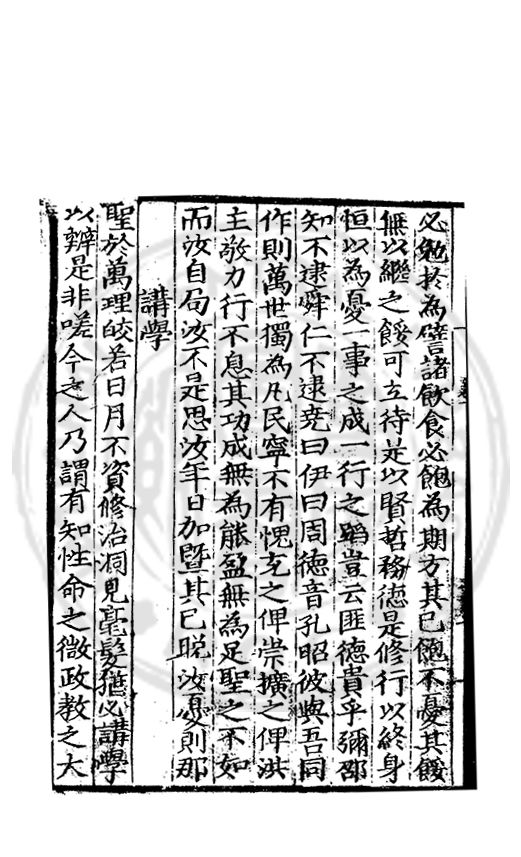 必勉於為譬諸飲食必飽為期方其已飽不憂其餒
無以繼之餒可立待是以賢哲務德是修行以終身
恒以為憂一事之成一行之蹈豈云匪德貴乎彌邵
知不逮舜仁不逮堯曰伊曰周德音孔昭彼與吾同
作則萬世獨為凡民寧不有愧充之俾崇擴之俾洪
主敬力行不息其功成無為態盈無為足聖之不如
而汝自局汝不是思汝年日加暨其已晚汝憂則那
講學
聖於萬理皎若日月不資修治洞見毫髮猶必講學
以辨是非嗟今之人乃謂有知性命之微政教之大